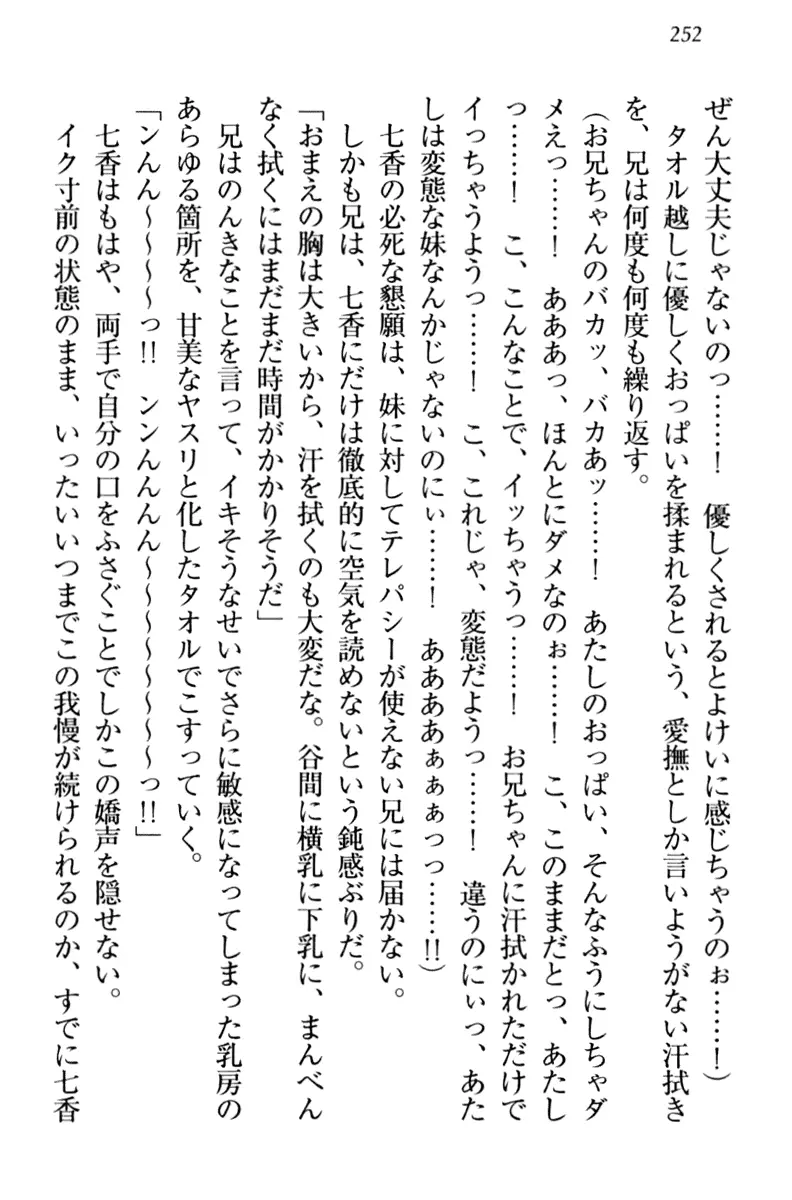 252
ぜん大丈夫じゃないのっ……！　優しくされるとよけいに感じちゃうのぉ……！）
　タオル越しに優しくおっぱいを揉まれるという、愛撫としか言いようがない汗拭き
を、兄は何度も何度も繰り返す。
（お兄ちゃんのバカッ、バカあッ……！　あたしのおっぱい、そんなふうにしちゃダ
メえっ……！　あああっ、ほんとにダメなのぉ……！　こ、このままだとっ、あたし
っ……！　こ、こんなことで、イッちゃうっ……！　お兄ちゃんに汗拭かれただけで
イっちゃうようっ……！　こ、これじゃ、変態だようっ……！　違うのにぃっ、あた
しは変態な妹なんかじゃないのにぃ……！　ああああぁぁぁっっ……!!）
　七香の必死な懇願は、妹に対してテレパシーが使えない兄には届かない。
　しかも兄は、七香にだけは徹底的に空気を読めないという鈍感ぶりだ。
「おまえの胸は大きいから、汗を拭くのも大変だな。谷間に横乳に下乳に、まんべん
なく拭くにはまだまだ時間がかかりそうだ」
　兄はのんきなことを言って、イキそうなせいでさらに敏感になってしまった乳房の
あらゆる箇所を、甘美なヤスリと化したタオルでこすっていく。
「ンんん～～～～っ!!　ンンんんんん～～～～～～～～っ!!」
　七香はもはや、両手で自分の口をふさぐことでしかこの嬌声を隠せない。
　イク寸前の状態のまま、いったいいつまでこの我慢が続けられるのか、すでに七香